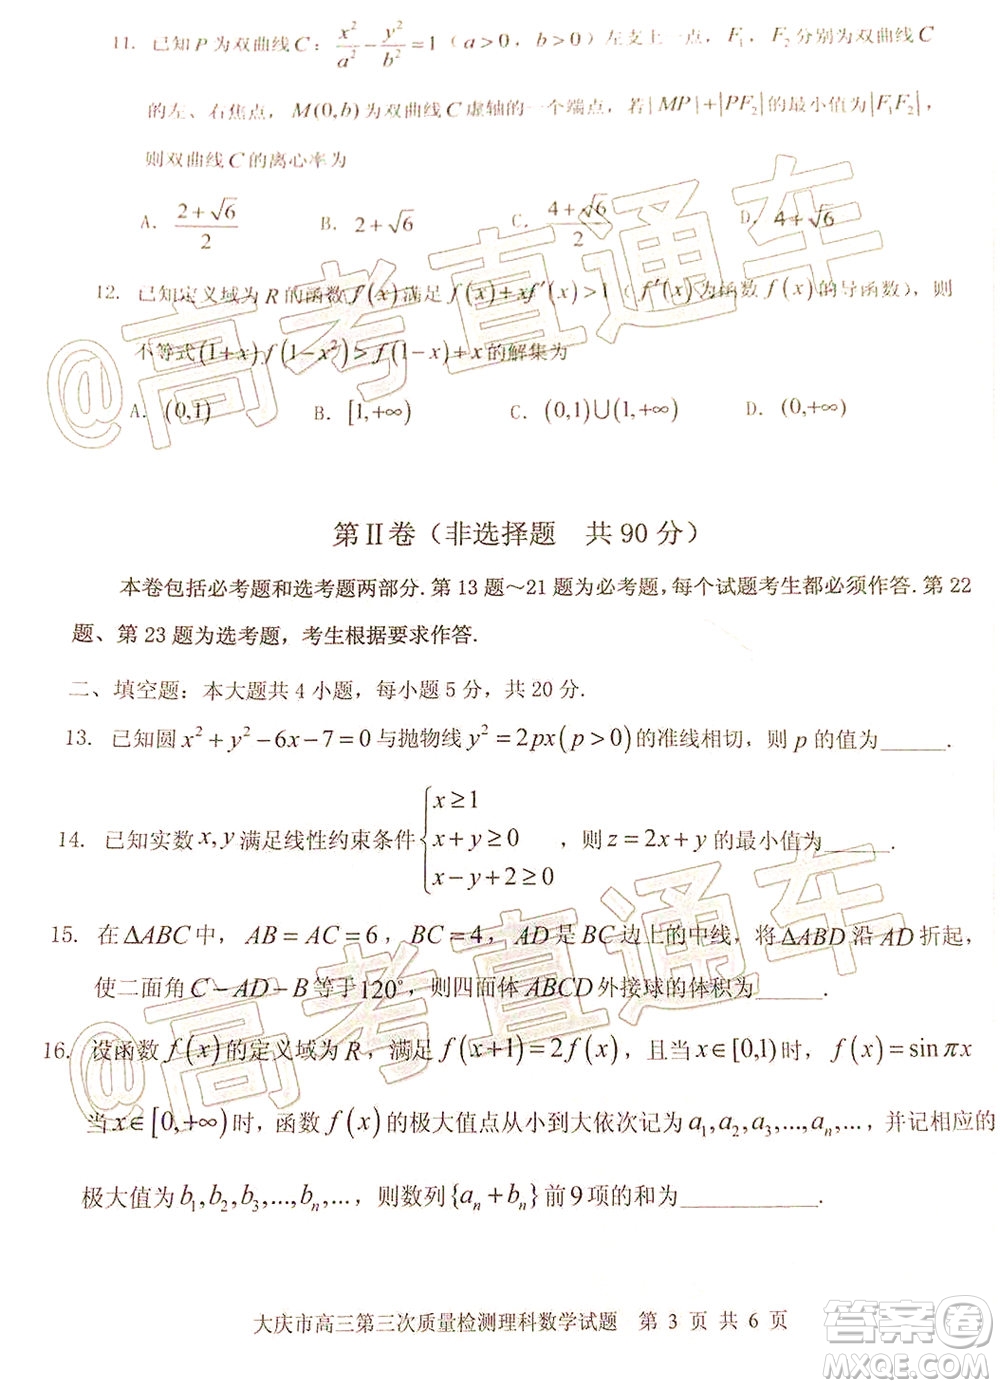 11. 已知 P 为双曲线 C：x²/a² − y²/b² = 1（a>0，b>0）左支上一点，F₁，F₂ 分别为双曲线 C
的左、右焦点，M(0,b) 为双曲线 C 虚轴的一个端点，若|MP|+|PF₂|的最小值为|F₁F₂|，
则双曲线 C 的离心率为
A. (2+√6)/2 B. 2+√6 C. (4+√6)/2 D. 4+√6
12. 已知定义域为 R 的函数 f(x) 满足 f(x)+xf′(x)>1（f′(x) 为函数 f(x) 的导函数），则
不等式(1+x)f(1−x²)>f(1−x)+x的解集为
A. (0,1) B. [1,+∞) C. (0,1)∪(1,+∞) D. (0,+∞)
第Ⅱ卷（非选择题 共 90 分）
本卷包括必考题和选考题两部分.第 13 题～21 题为必考题，每个试题考生都必须作答.第 22
题、第 23 题为选考题，考生根据要求作答.
二、填空题：本大题共 4 小题，每小题 5 分，共 20 分.
13. 已知圆 x²+y²−6x−7=0 与抛物线 y²=2px(p>0) 的准线相切，则 p 的值为______.
14. 已知实数 x,y 满足线性约束条件 {x≥1 x+y≥0 x−y+2≥0，则 z=2x+y 的最小值为______.
15. 在 ΔABC 中，AB=AC=6，BC=4，AD 是 BC 边上的中线，将 ΔABD 沿 AD 折起，
使二面角 C−AD−B 等于 120°，则四面体 ABCD 外接球的体积为______.
16. 设函数 f(x) 的定义域为 R，满足 f(x+1)=2f(x)，且当 x∈[0,1) 时，f(x)=sinπx
当 x∈[0,+∞) 时，函数 f(x) 的极大值点从小到大依次记为 a₁,a₂,a₃,...,aₙ,...，并记相应的
极大值为 b₁,b₂,b₃,...,bₙ,...，则数列{aₙ+bₙ}前 9 项的和为__________.
大庆市高三第三次质量检测理科数学试题 第 3 页 共 6 页
@高考直通车
@高考直通车
答案圈
MXQE.COM